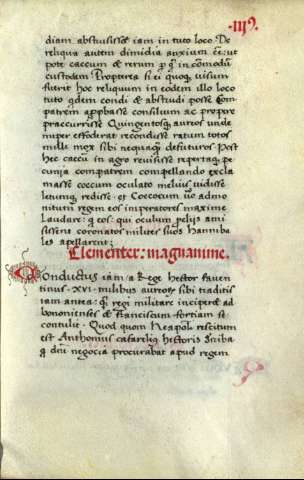 diam abstulisse iam in tuto loco. De
reliqua autem dimidia anxium eē: ut
pote caecum & rerum
custodem. Propterea si ei quoq; uisum
fuerit hoc reliquum in eodem illo loco
tuto qdem condi & abstrudi posse. Com
patrem approbasse consilium ac propere
praecurrisse Quingentosq; aureos unde
nuper effoderat recondisse ratum totos
mille mox sibi nequaq̄ defuturos. Post
haec caecū in agro reuisisse repertaq; pe
cunia compatrem compellando excla
masse coecum oculato melius uidisse
letumq; redisse. et Cocceum
nituit regem eos imperatores maxime
laudare: q eos: qui oculum pelis ami
sissent coronatos milites suos Hanniba
les apellarent;
Clementer: magnanime.
Conductus iam a Rege hector fauen
tinus .XVI. milibus aureorū sibi traditis
iam antea: regi militare inciperē ad
bononienses & franciscum fortiam se
contulit. Quod quom Neapolī rescitum
est Anthonius cafarelius hectoris scriba
q dnī negocia procurabat apud regem